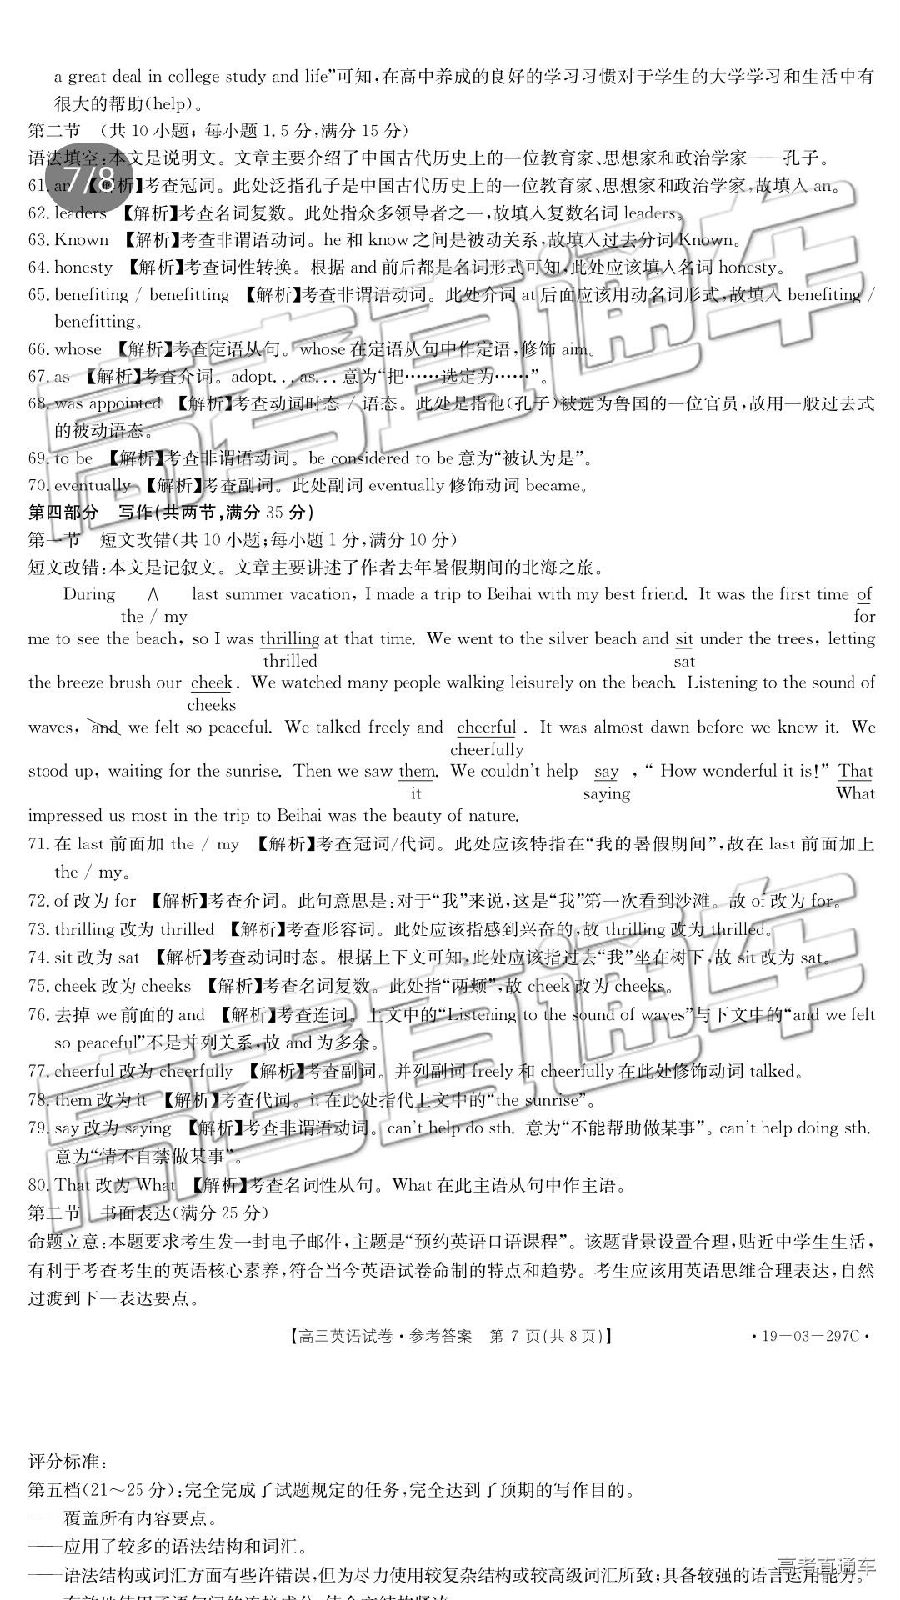 a great deal in college study and life”可知,在高中养成的良好的学习习惯对于学生的大学学习和生活中有
很大的帮助(help)。
第二节 (共 10 小题;每小题 1.5 分,满分 15 分)
语法填空:本文是说明文。文章主要介绍了中国古代历史上的一位教育家、思想家和政治学家——孔子。
7/8
61. an 【解析】考查冠词。此处泛指孔子是中国古代历史上的一位教育家、思想家和政治学家,故填入 an。
62. leaders 【解析】考查名词复数。此处指众多领导者之一,故填入复数名词 leaders。
63. Known 【解析】考查非谓语动词。he 和 know 之间是被动关系,故填入过去分词 Known。
64. honesty 【解析】考查词性转换。根据 and 前后都是名词形式可知,此处应该填入名词 honesty。
65. benefiting / benefitting 【解析】考查非谓语动词。此处介词 at 后面应该用动名词形式,故填入 benefiting /
benefitting。
66. whose 【解析】考查定语从句。whose 在定语从句中作定语,修饰 aim。
67. as 【解析】考查介词。adopt...as...意为“把……选定为……”。
68. was appointed 【解析】考查动词时态 / 语态。此处是指他(孔子)被选为鲁国的一位官员,故用一般过去式
的被动语态。
69. to be 【解析】考查非谓语动词。be considered to be 意为“被认为是”。
70. eventually 【解析】考查副词。此处副词 eventually 修饰动词 became。
第四部分 写作(共两节,满分 35 分)
第一节 短文改错(共 10 小题;每小题 1 分,满分 10 分)
短文改错:本文是记叙文。文章主要讲述了作者去年暑假期间的北海之旅。
During ∧ last summer vacation, I made a trip to Beihai with my best friend. It was the first time of
the / my for
me to see the beach, so I was thrilling at that time. We went to the silver beach and sit under the trees, letting
thrilled sat
the breeze brush our cheek. We watched many people walking leisurely on the beach. Listening to the sound of
cheeks
waves, and we felt so peaceful. We talked freely and cheerful. It was almost dawn before we knew it. We
cheerfully
stood up, waiting for the sunrise. Then we saw them. We couldn’t help say, “ How wonderful it is!” That
it saying What
impressed us most in the trip to Beihai was the beauty of nature.
71. 在 last 前面加 the / my 【解析】考查冠词/代词。此处应该特指在“我的暑假期间”,故在 last 前面加上
the / my。
72. of 改为 for 【解析】考查介词。此句意思是:对于“我”来说,这是“我”第一次看到沙滩。故 of 改为 for。
73. thrilling 改为 thrilled 【解析】考查形容词。此处应该指感到兴奋的,故 thrilling 改为 thrilled。
74. sit 改为 sat 【解析】考查动词时态。根据上下文可知,此处应该指过去“我”坐在树下,故 sit 改为 sat。
75. cheek 改为 cheeks 【解析】考查名词复数。此处指“两颊”,故 cheek 改为 cheeks。
76. 去掉 we 前面的 and 【解析】考查连词。上文中的“Listening to the sound of waves”与下文中的“and we felt
so peaceful”不是并列关系,故 and 为多余。
77. cheerful 改为 cheerfully 【解析】考查副词。并列副词 freely 和 cheerfully 在此处修饰动词 talked。
78. them 改为 it 【解析】考查代词。it 在此处指代上文中的“the sunrise”。
79. say 改为 saying 【解析】考查非谓语动词。can’t help do sth. 意为“不能帮助做某事”。can’t help doing sth.
意为“情不自禁做某事”。
80. That 改为 What 【解析】考查名词性从句。What 在此主语从句中作主语。
第二节 书面表达(满分 25 分)
命题立意:本题要求考生发一封电子邮件,主题是“预约英语口语课程”。该题背景设置合理,贴近中学生生活,
有利于考查考生的英语核心素养,符合当今英语试卷命制的特点和趋势。考生应该用英语思维合理表达,自然
过渡到下一表达要点。
【高三英语试卷·参考答案 第 7 页(共 8 页)】 ·19-03-297C·
评分标准:
第五档(21~25 分):完全完成了试题规定的任务,完全达到了预期的写作目的。
——覆盖所有内容要点。
——应用了较多的语法结构和词汇。
——语法结构或词汇方面有些许错误,但为尽力使用较复杂结构或较高级词汇所致;具备较强的语言运用能力。
高考直通车
高考直通车
高考直通车